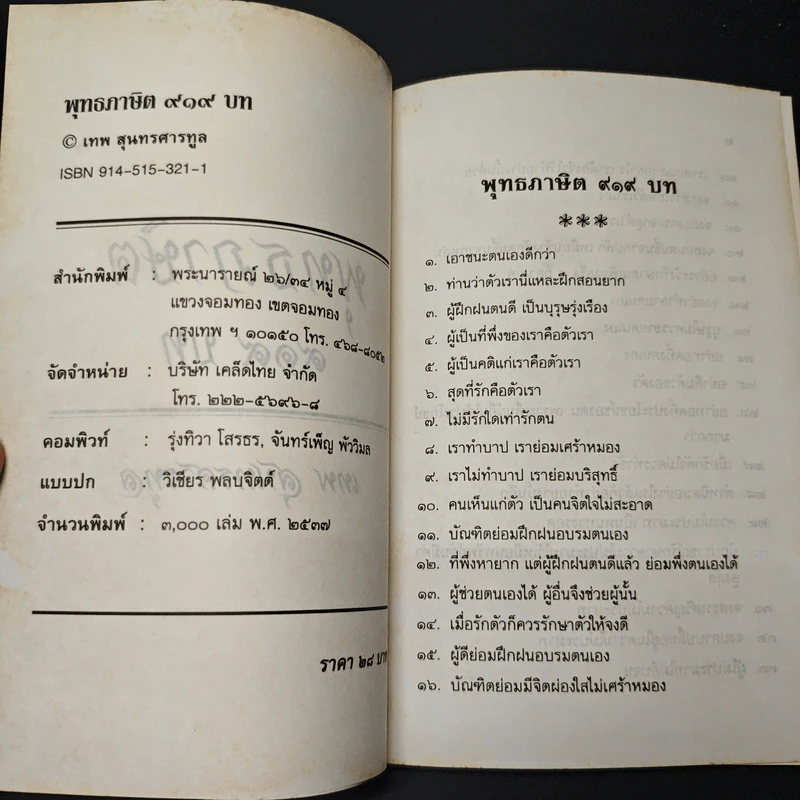 พุทธภาษิต ๙๑๙ บท
© เทพ สุนทรศารทูล
ISBN 914-515-321-1
สำนักพิมพ์ : พระนารายณ์ ๒๖/๓๔ หมู่ ๔
แขวงจอมทอง เขตจอมทอง
กรุงเทพ ฯ ๑๐๑๕๐ โทร. ๔๖๘-๘๐๕๒
จัดจำหน่าย : บริษัท เคล็ดไทย จำกัด
โทร. ๒๒๒-๕๖๙๖-๘
คอมพิวท์ : รุ่งทิวา โสรธร, จันทร์เพ็ญ พัววิมล
แบบปก : วิเชียร พลบจิตต์
จำนวนพิมพ์ : ๓,๐๐๐ เล่ม พ.ศ. ๒๕๓๗
ราคา ๒๘ บาท
พุทธภาษิต ๙๑๙ บท
***
๑. เอาชนะตนเองดีกว่า
๒. ท่านว่าตัวเรานี่แหละฝึกสอนยาก
๓. ผู้ฝึกฝนตนดี เป็นบุรุษรุ่งเรือง
๔. ผู้เป็นที่พึ่งของเราคือตัวเรา
๕. ผู้เป็นคติแก่เราคือตัวเรา
๖. สุดที่รักคือตัวเรา
๗. ไม่มีรักใดเท่ารักตน
๘. เราทำบาป เราย่อมเศร้าหมอง
๙. เราไม่ทำบาป เราย่อมบริสุทธิ์
๑๐. คนเห็นแก่ตัว เป็นคนจิตใจไม่สะอาด
๑๑. บัณฑิตย่อมฝึกฝนอบรมตนเอง
๑๒. ที่พึ่งหายาก แต่ผู้ฝึกฝนตนดีแล้ว ย่อมพึ่งตนเองได้
๑๓. ผู้ช่วยตนเองได้ ผู้อื่นจึงช่วยผู้นั้น
๑๔. เมื่อรักตัวก็ควรรักษาตัวให้จงดี
๑๕. ผู้ดีย่อมฝึกฝนอบรมตนเอง
๑๖. บัณฑิตย่อมมีจิตผ่องใสไม่เศร้าหมอง